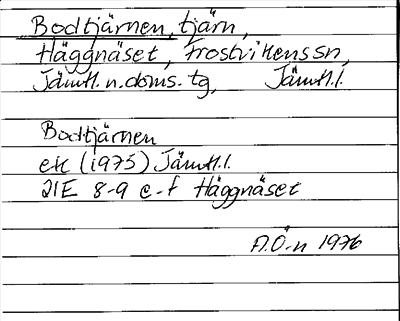 Bodtjärnen, tjärn,
Häggnäset, Frostvikens sn,
Jämtl. n. doms. tg, Jämtl. l.
Bodtjärnen
ek (1975) Jämtl. l.
21E 8-9 e-f Häggnäset
A.Ö-n 1976